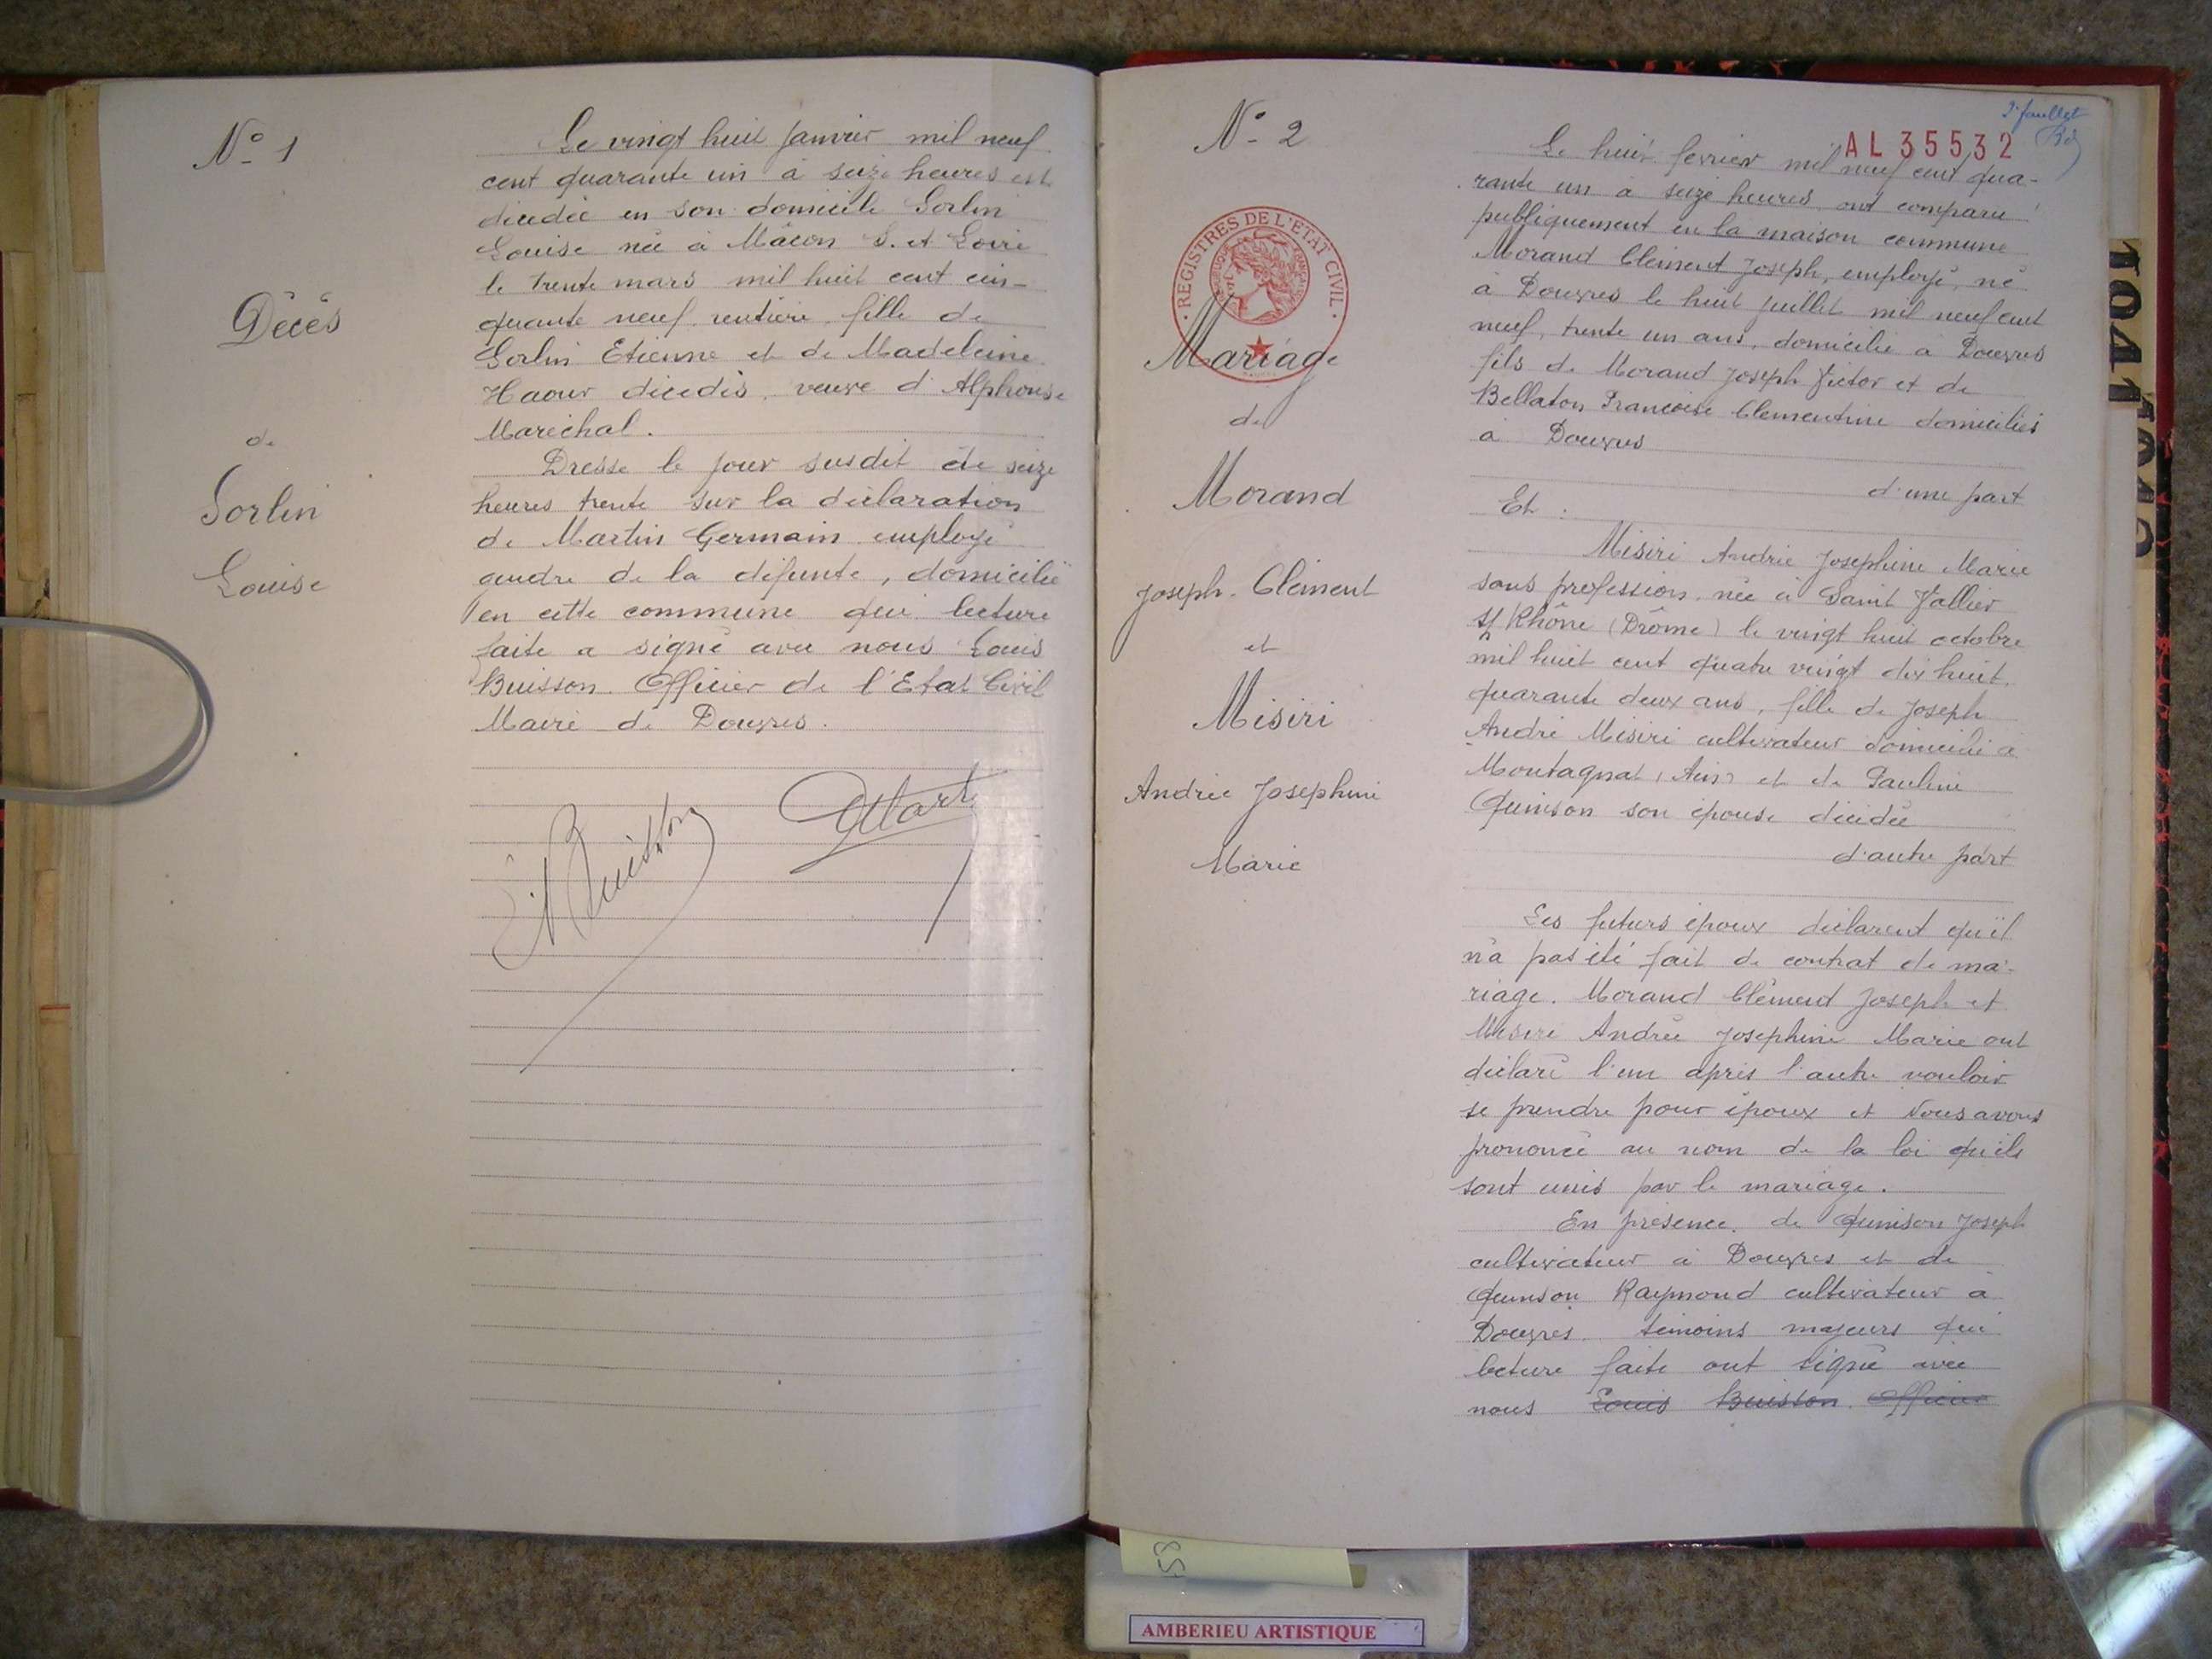 N° 1
Décés
de
Sorlin
Louise
Le vingt huit Janvier mil neuf
cent quarante un à seize heures est
décédée en son domicile Sorlin
Louise née à Mâcon S. et Loire
le trente mars mil huit cent cin-
quante neuf rentière, fille de
Sorlin Etienne et de Madeleine
Haour décédés, veuve d'Alphonse
Maréchal.
Dressé le jour susdit à seize
heures trente sur la déclaration
de Martin Germain employé
gendre de la défunte, domicilié
en cette commune qui lecture
faite a signé avec nous Louis
Buisson. Officier de l'Etat Civil
Maire de Douvres.
Buisson
GMart
N° 2
REGISTRES DE L'ETAT CIVIL
Mariage
de
Morand
Joseph-Clément
et
Misiri
Andrée Joséphine
Marie
2e feuillet
AL 35532
Le huit février mil neuf cent qua-
rante un à seize heures, ont comparu
publiquement en la maison commune
Morand Clément Joseph, employé, né
à Douvres le huit juillet mil neuf cent
neuf, trente un ans, domicilié à Douvres
fils de Morand Joseph Victor et de
Bellaton Francoise Clémentine domiciliés
à Douvres
d'une part
Et :
Misiri Andrée Joséphine Marie
sans profession, née à Saint Vallier
s/ Rhône (Drôme) le vingt huit octobre
mil huit cent quatre vingt dix huit,
quarante deux ans, fille de Joseph
André Misiri cultivateur domicilié à
Montagnat (Ain) et de Pauline
Quinson son épouse décédée
d'autre part
Les futurs époux déclarent qu'il
n'a pas été fait de contrat de ma-
riage. Morand Clément Joseph et
Misiri Andrée Joséphine Marie ont
déclaré l'un après l'autre vouloir
se prendre pour époux et Nous avons
prononcé au nom de la loi qu'ils
sont unis par le mariage.
En présence de Quinson Joseph
cultivateur à Douvres et de
Quinson Raymond cultivateur à
Douvres témoins majeurs qui
lecture faite ont signé avec
nous Louis Buisson. Officier
1941 1942
AMBERIEU ARTISTIQUE